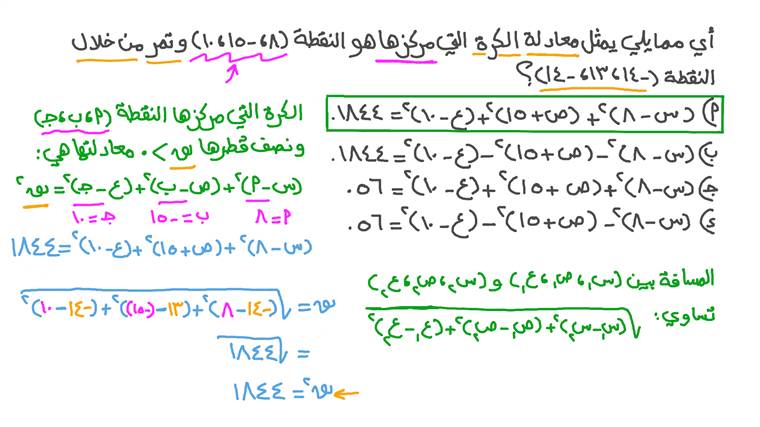 أي مما يلي يمثل معادلة الكرة التي مركزها هو النقطة (٨، -١٥، ١٠) وتمر من خلال
النقطة (-١٤، ١٣، -١٤)؟
أ) (س - ٨)² + (ص + ١٥)² + (ع - ١٠)² = ١٨٤٤.
ب) (س - ٨)² - (ص + ١٥)² - (ع - ١٠)² = ١٨٤٤.
ج) (س - ٨)² + (ص + ١٥)² + (ع - ١٠)² = ٥٦.
د) (س - ٨)² - (ص + ١٥)² - (ع - ١٠)² = ٥٦.
الكرة التي مركزها النقطة (أ، ب، ج)
ونصف قطرها نق > ٠ معادلتها هي:
(س - أ)² + (ص - ب)² + (ع - ج)² = نق²
أ = ٨ ب = -١٥ ج = ١٠
(س - ٨)² + (ص + ١٥)² + (ع - ١٠)² = ١٨٤٤
المسافة بين (س١، ص١، ع١) و (س٢، ص٢، ع٢)
تساوي: √(س١ - س٢)² + (ص١ - ص٢)² + (ع١ - ع٢)²
نق = √(-١٤ - ٨)² + (١٣ - (-١٥))² + (-١٤ - ١٠)²
= √١٨٤٤
نق² = ١٨٤٤